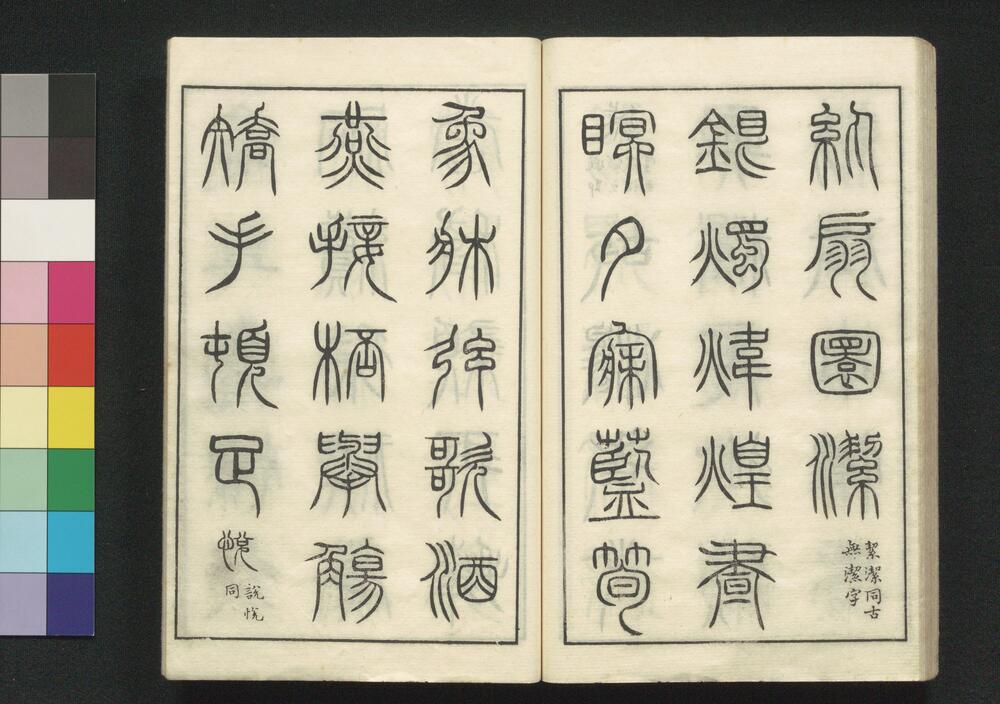 紈扇圜潔
絜潔同古
無潔字
銀燭煒煌晝
瞑夕寐藍筍
象牀弦歌酒
燕接桮舉觴
矯手頓足悅
說悅
同